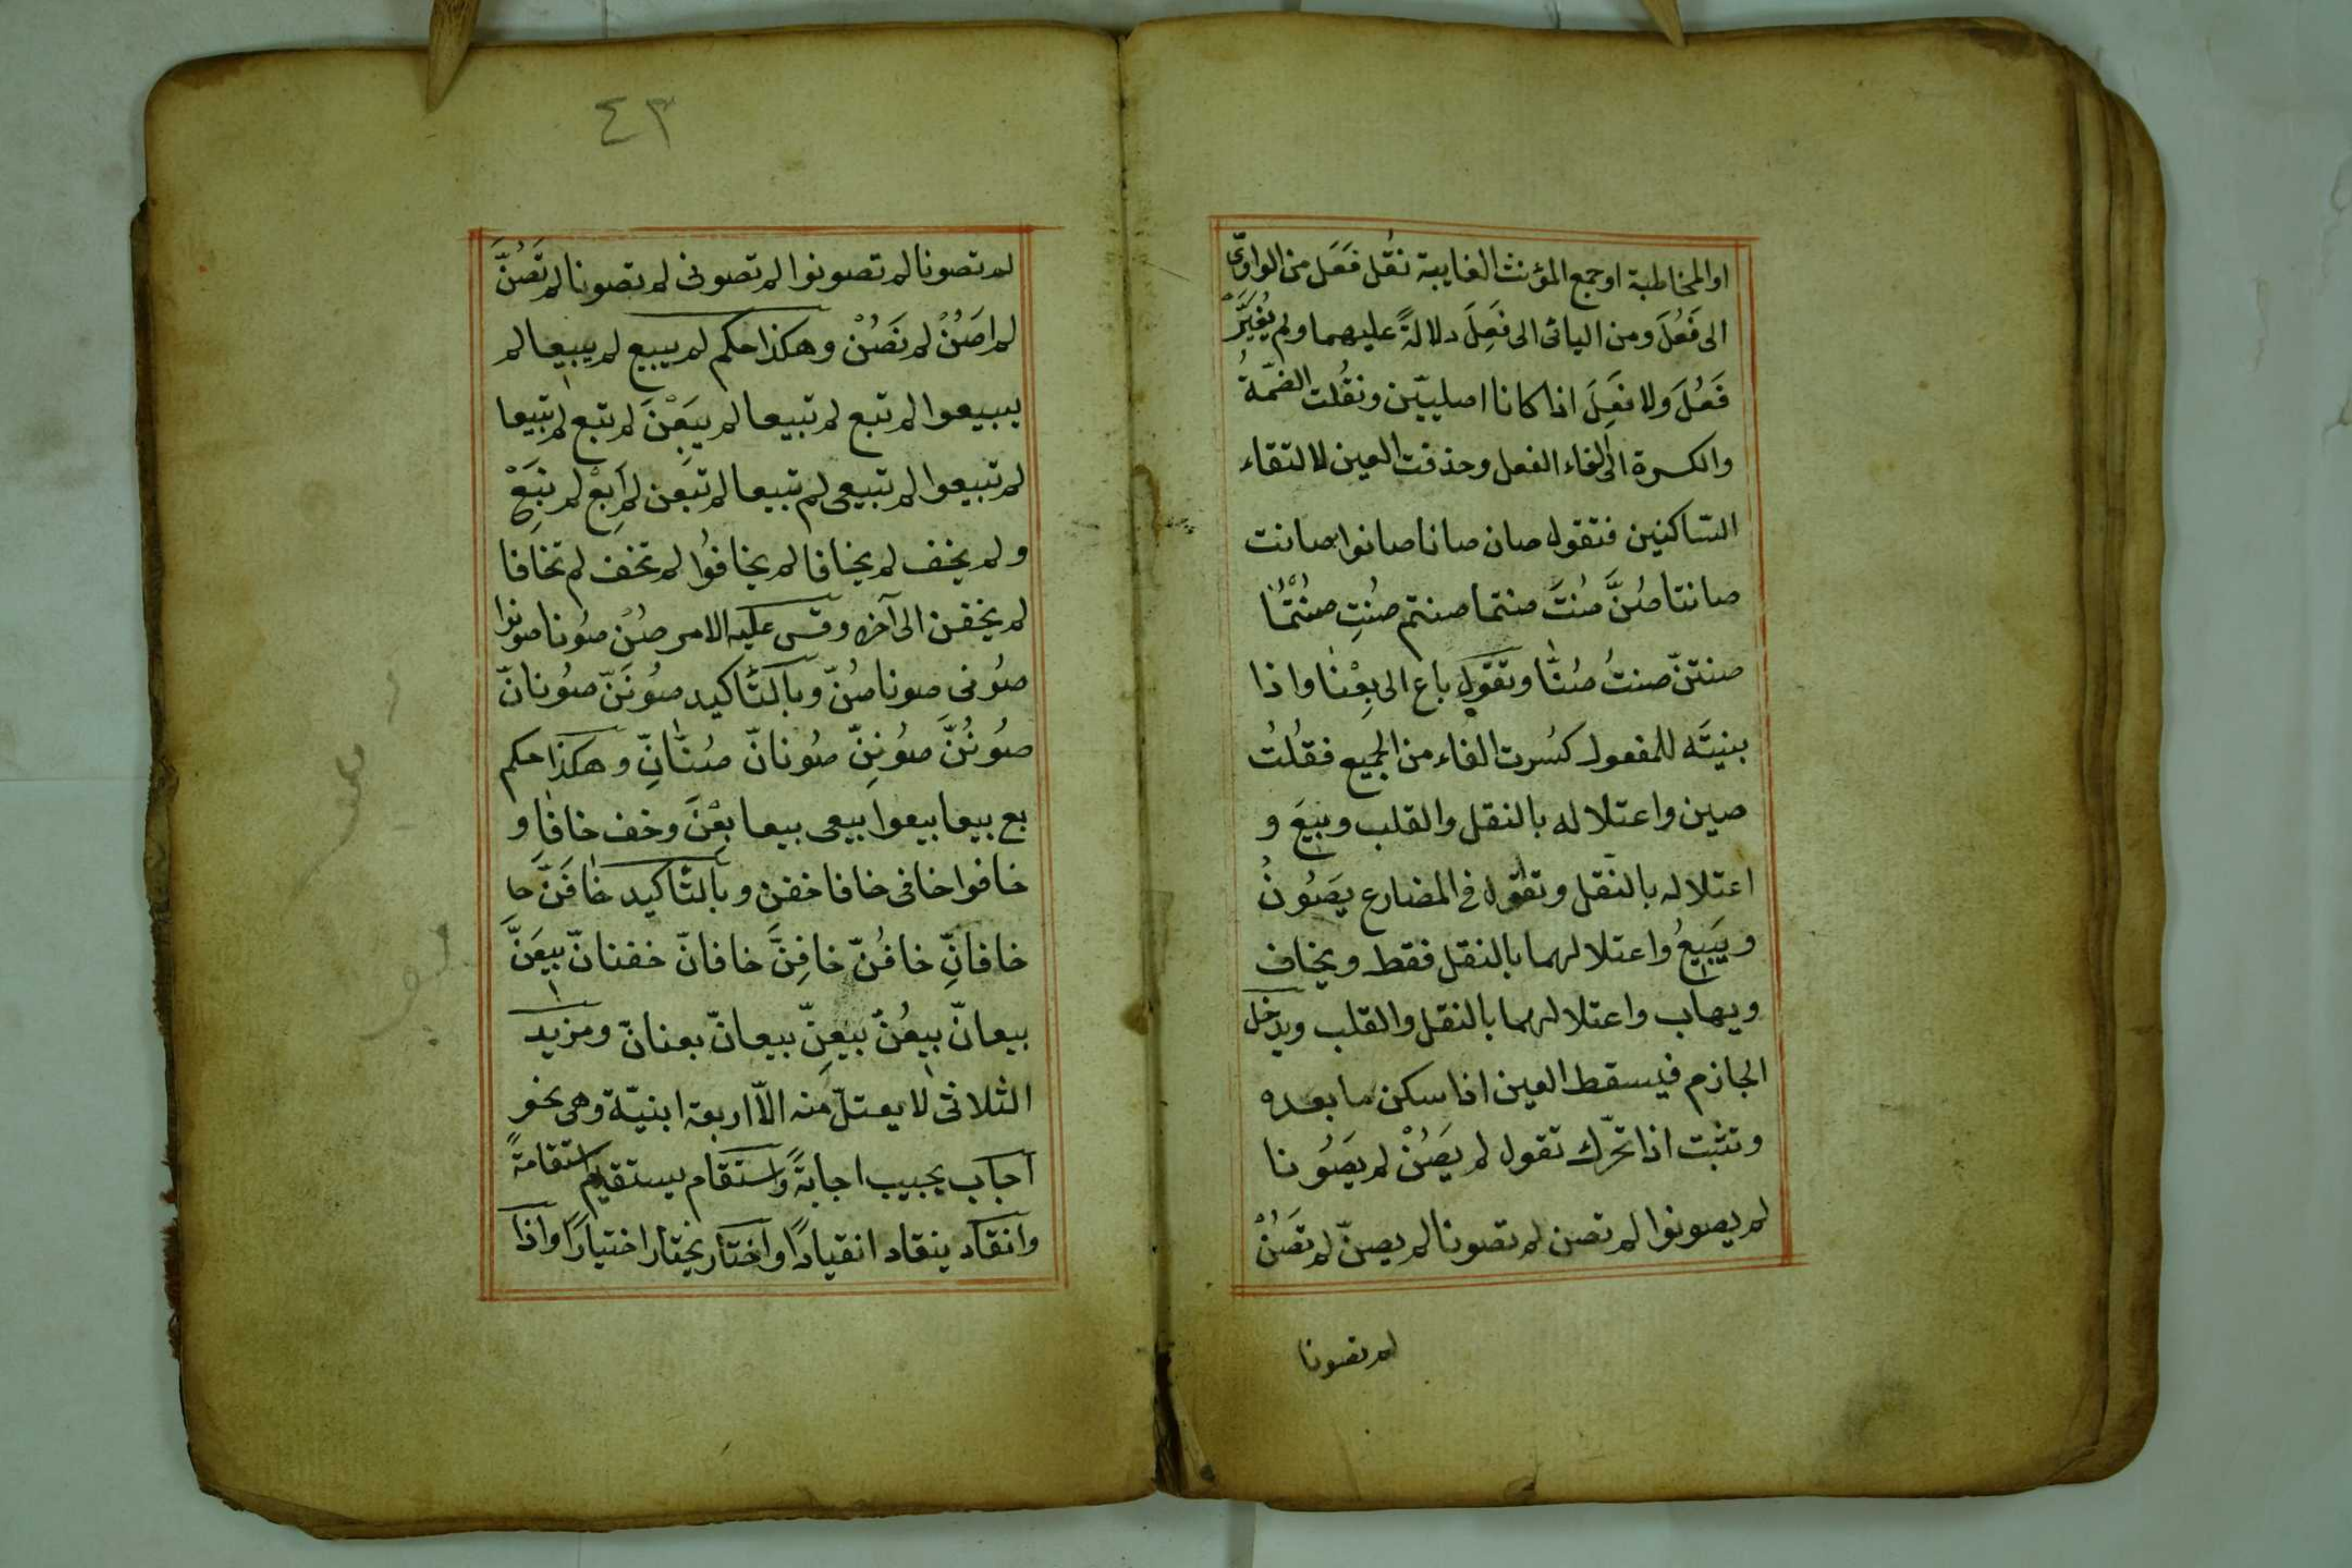 او المخاطبة او جمع المؤنث الغايبة نقل فَعَلَ من الواوىّ
الى فَعُلَ ومن اليائى الى فَعِلَ دلالةً عليهما ولم يُغَيَّرْ
فَعُلَ ولا فَعِلَ اذا كانا اصليين ونقُلت الضمّةُ
والكسرة الى الفاء الفعل وحذفت العين لالتقاء
السّاكنين فتقول صان صانا صانوا صانت
صانتا صُنَّ صُنتَ صنتما صنتم صُنتِ صُنْتُمَا
صنتنّ صنتُ صُنّا وتقول باع الى بِعْنا واذا
بنيتَه للمفعول كسُرت الفاء من الجميع فقُلتُ
صين واعتلاله بالنقل والقلب وبيعَ و
اعتلاله بالنّقل وتقول فى المضارع يَصُونُ
ويَبِيعُ واعتلالهما بالنقل فقط ويخاف
ويهاب واعتلالهما بالنقل والقلب ويدخل
الجازم فيسقط العين اذا سكن ما بعده
وتثبت اذا تحرّك تقول لم يَصُنْ لم يَصُونا
لم يصونوا لم تصن لم تصونا لم يصنّ لم تَصُنْ
لم تصونا
٤٣
لم تصونا لم تصونوا لم تصونى لم تصونا لم تَصُنَّ
لم اصُنْ لم نَصُنْ وهكذا حكم لم يبيع لم يبيعا لم
يبيعوا لم تبع لم تبيعا لم يَبِعْنَ لم تبع لم تبيعا
لم تبيعوا لم تبيعى لم تبيعا لم تبعن لم اَبِعْ لم نبِعْ
ولم يخف لم يخافا لم يخافوا لم تخف لم تخافا
لم يخفن الى آخره وقس عليه الامر صُنْ صُونا صونوا
صُونى صونا صُنّ وبالتّاكيد صُونَنّ صُونانّ
صُونُنَّ صُونِنّ صُونانّ صُنّانِّ وهكذا حكم
بع بيعا بيعوا بيعى بيعا بِعْنَ وخف خافا و
خافوا خافى خافا خفن وبالتّاكيد خافَنَّ خا
خافانِّ خافُنّ خافِنَّ خافانّ خفنانّ بيعَنَّ
بيعانّ بيعُنّ بيعِنّ بيعانّ بعنانّ ومزيد
الثلاثى لا يعتلّ منه الاّ اربعة ابنيّة وهى نحو
اجاب يجيب اجابةً واستقام يستقيم استقامةً
وانقاد ينقاد انقيادًا واختار يختار اختيارًا واذا